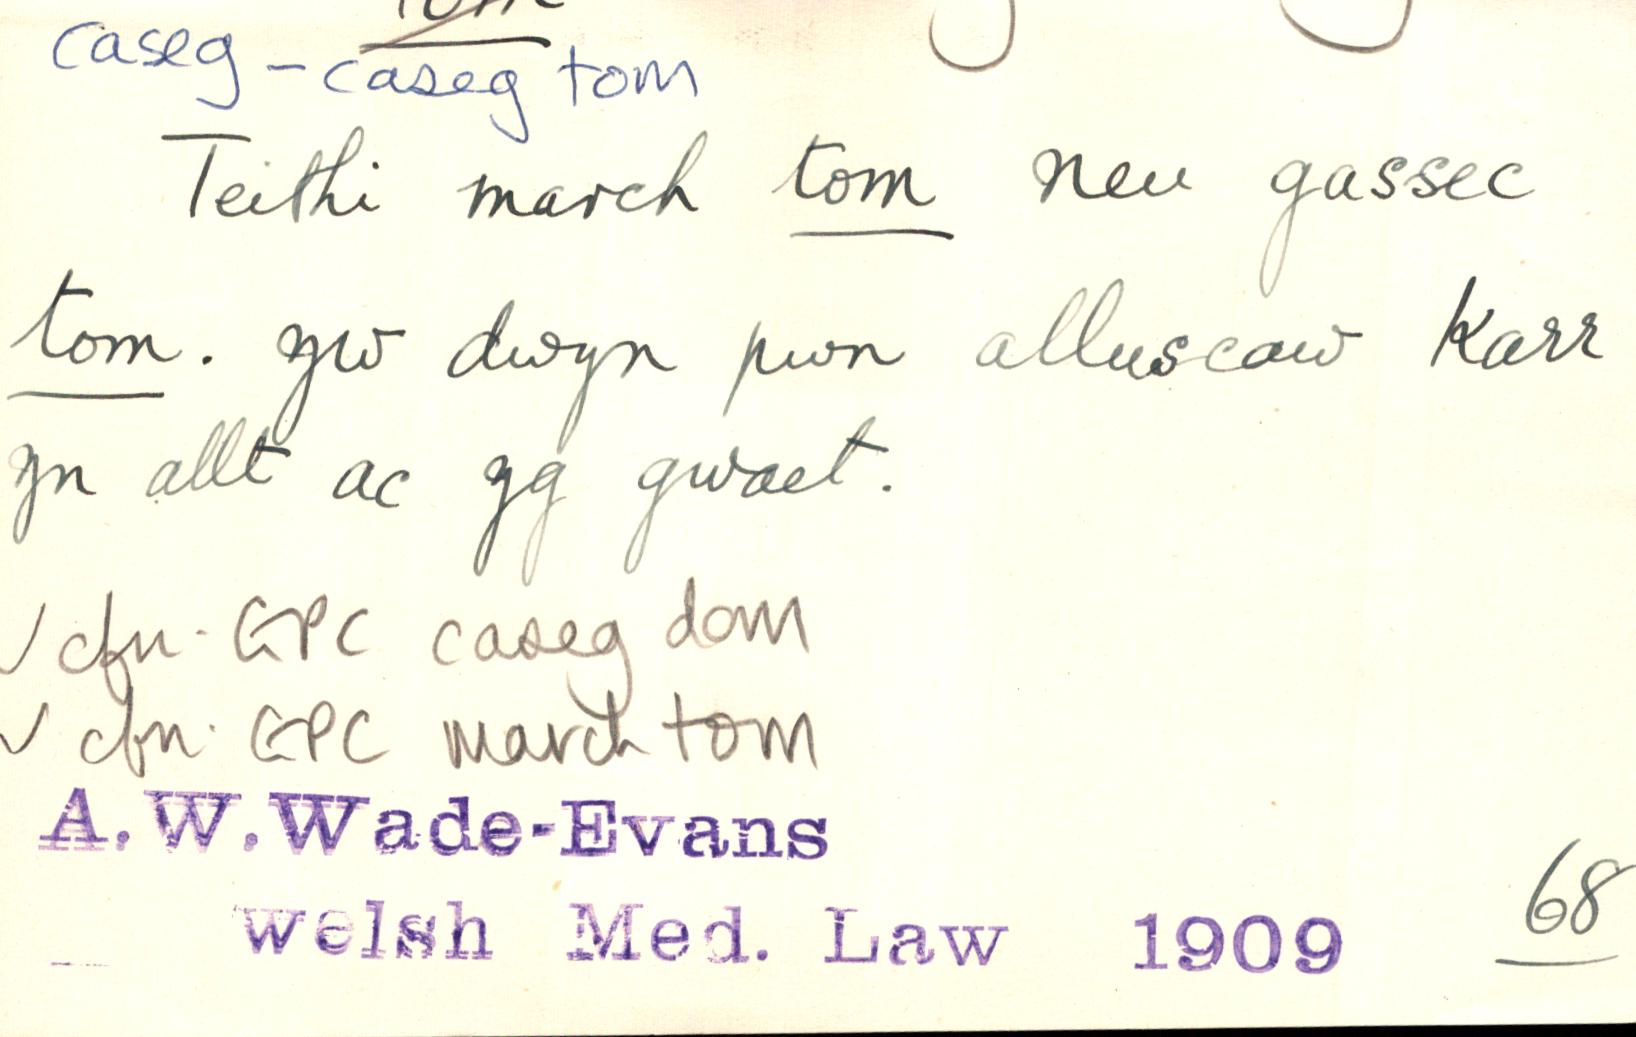 tom
caseg - caseg tom
Teithi march tom neu gassec
tom. yw dwyn pwn alluscaw karr
yn allt ac yg gwaet.
✓ cfn. GPC caseg dom
✓ cfn. GPC march tom
A.W.Wade-Evans
Welsh Med. Law 1909 68